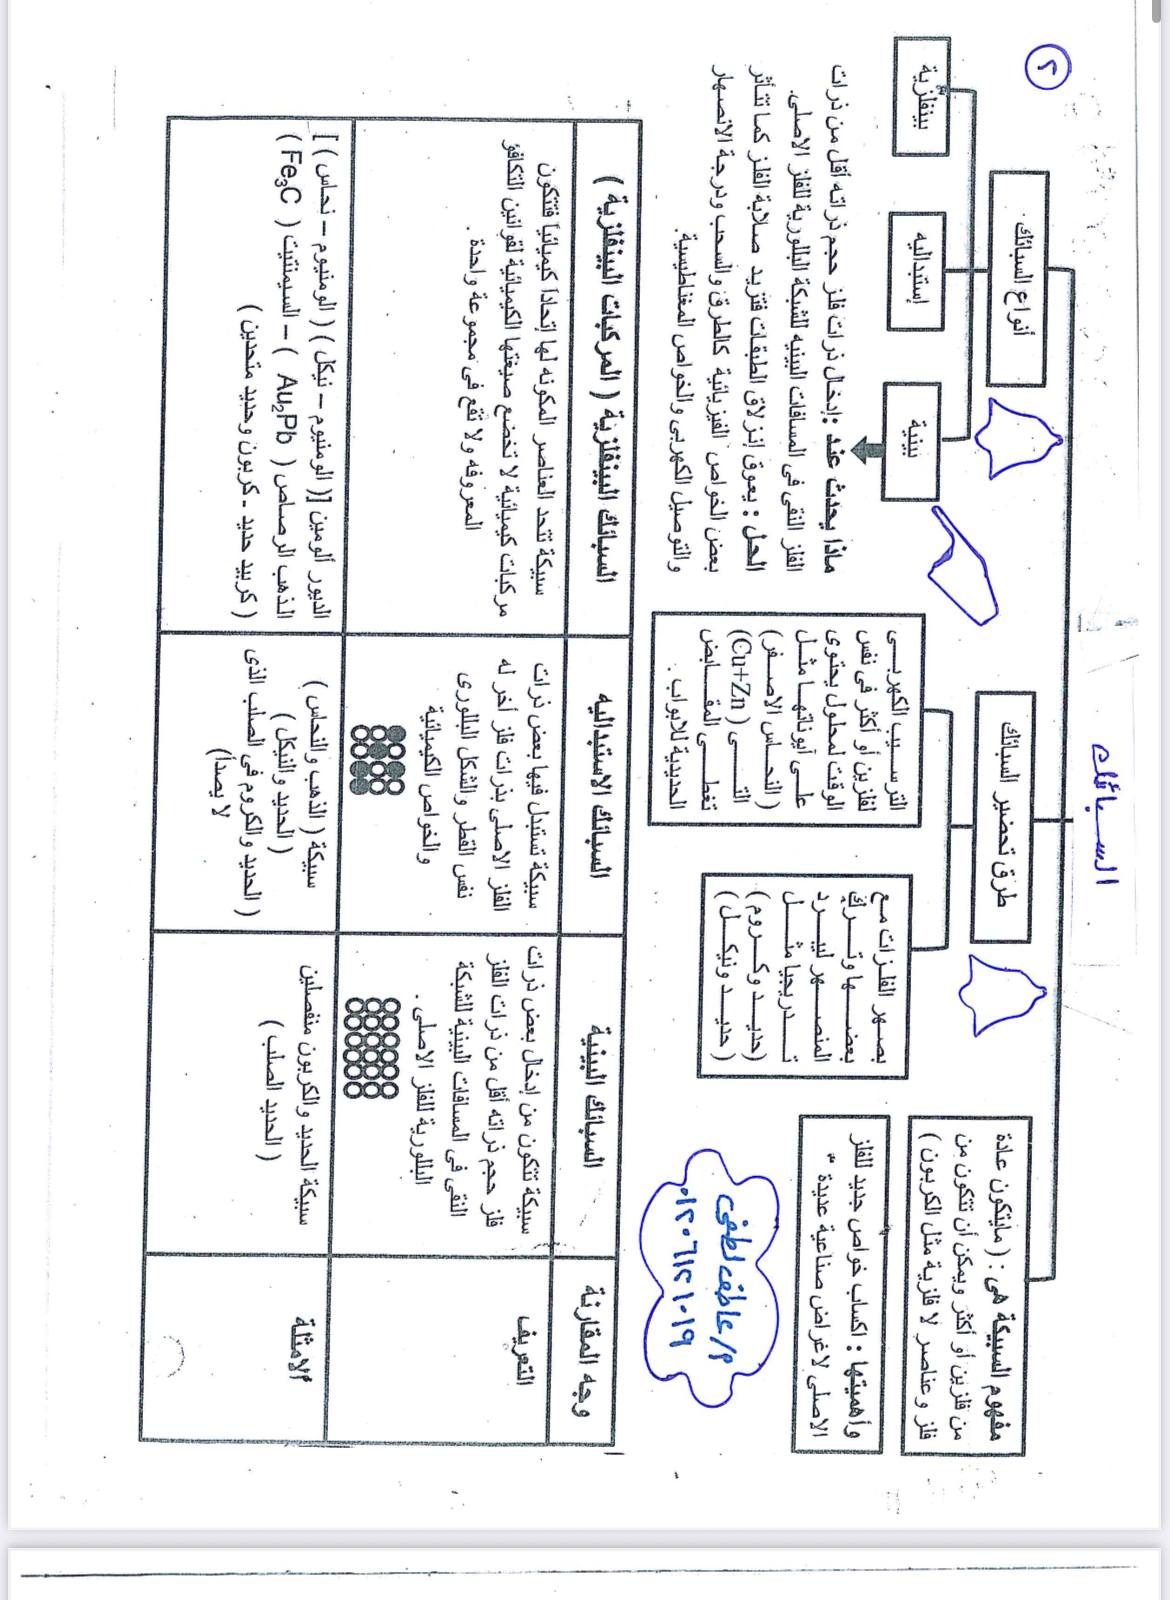 ٢
السبائك
مفهوم السبيكة هى : ( مايتكون عادة
من فلزين أو أكثر ويمكن أن تتكون من
فلز وعناصر لا فلزية مثل الكربون )
وأهميتها : اكساب خواص جديد للفلز
الاصلى لاغراض صناعية عديدة "
م/عاطف لطفى
٠١٢٠٦١٢١٠١٩
طرق تحضير السبائك
بصهر الفلزات مع
بعضها وترك
المنصهر ليبرد
تدريجيا مثل
(حديد وكروم)
( حديد ونيكل )
الترسيب الكهربى
لفلزين أو أكثر فى نفس
الوقت لمحلول يحتوى
على أيوناتهما مثل
( النحاس الاصفر)
(Cu+Zn ) التى
تغطى المقابض
الحديدية للابواب .
أنواع السبائك
بينية
إستبداليه
بينفلزية
ماذا يحدث عند :إدخال ذرات فلز حجم ذراته أقل من ذرات
الفلز النقى فى المسافات البينيه للشبكة البللورية للفلز الاصلى.
الحل : يعوق إنزلاق الطبقات فتزيد صلابة الفلز كما تتأثر
بعض الخواص الفيزيائية كالطرق والسحب ودرجة الانصهار
والتوصيل الكهربى والخواص المغناطيسية.
وجه المقارنة
السبائك البينية
السبائك الاستبداليه
السبائك البينفلزية ( المركبات البينفلزية )
التعريف
سبيكة تتكون من إدخال بعض ذرات
فلز حجم ذراته أقل من ذرات الفلز
النقى فى المسافات البينية للشبكة
البللورية للفلز الاصلى .
سبيكة تستبدل فيها بعض ذرات
الفلز الاصلى بذرات فلز أخر له
نفس القطر والشكل البللورى
والخواص الكيميائية
سبيكة تتحد العناصر المكونه لها إتحاداً كيميائياً فتتكون
مركبات كيميائية لا تخضع صيغتها الكيميائية لقوانين التكافؤ
المعروفه ولا تقع فى مجموعة واحدة .
الامثلة
سبيكة الحديد والكربون منفصلين
( الحديد الصلب )
سبيكة ( الذهب والنحاس )
( الحديد والنيكل )
( الحديد والكروم فى الصلب الذى
لا يصدأ)
الديور ألومين [( الومنيوم – نيكل ) ( الومنيوم – نحاس ) ]
الذهب الرصاص ( Au₂Pb ) – السيمنتيت ( Fe₃C )
( كربيد حديد - كربون وحديد متحدين )